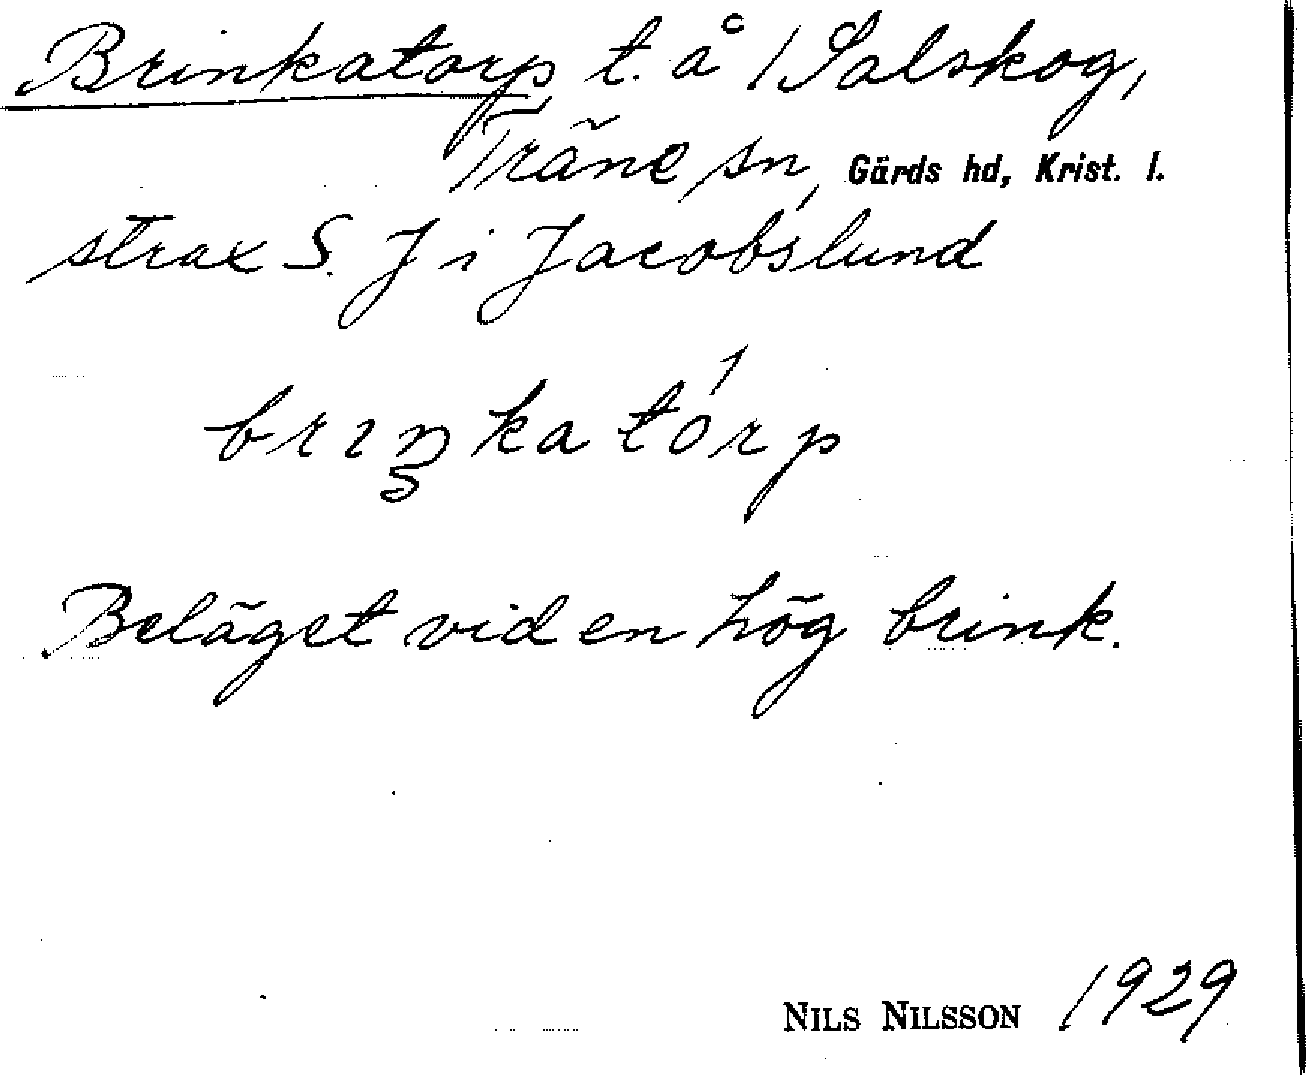 Brinkatorp t. å 1 Salskog,
Träne sn, Gärds hd, Krist. l.
strax S. J i Jacobslund
brıŋka tórp
Beläget vid en hög brink.
NILS NILSSON 1929